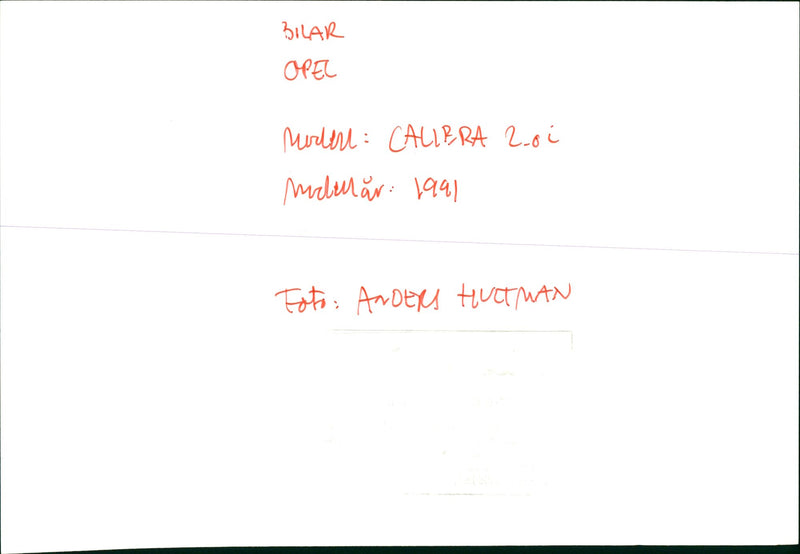 BILAR
OPEL
Modell: CALIBRA 2.0i
Modellår: 1991
Foto: ANDERS HULTMAN